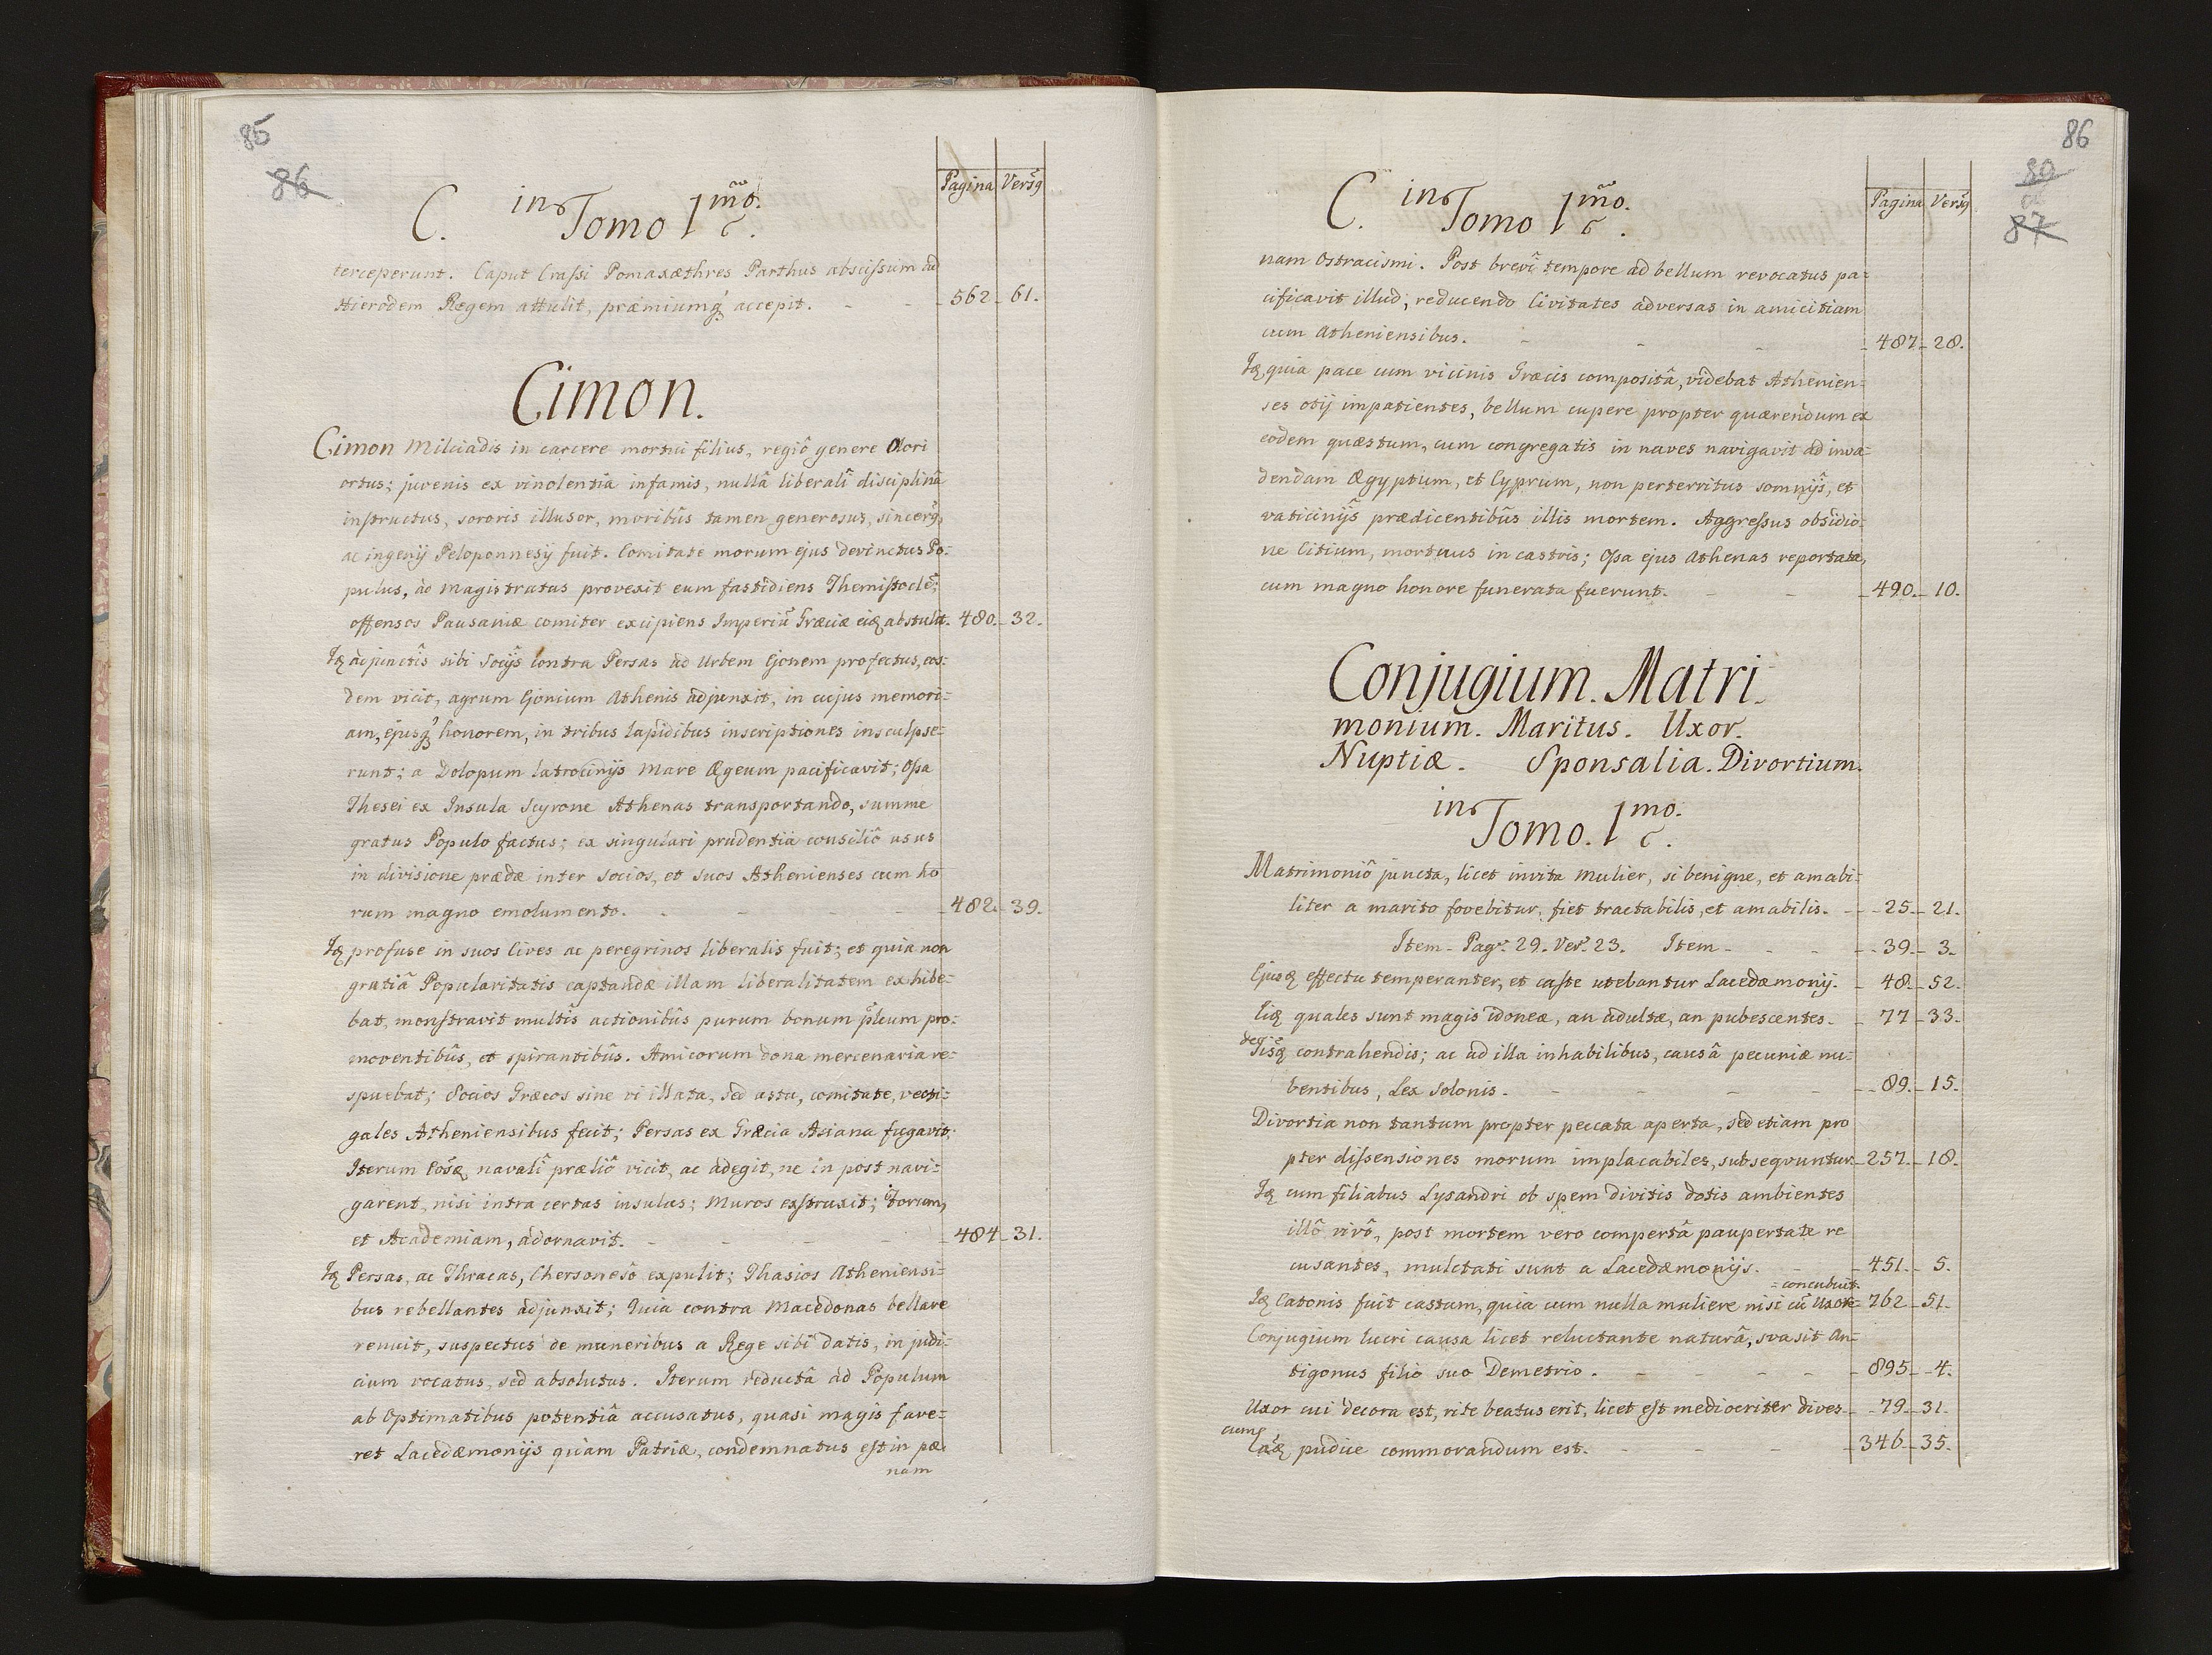 85
86
Pagina Versq
C. in Tomo 1mo.
terceperunt. Caput Crassi Pomaxæthres Parthus abscissum ad
Hierodem Regem attulit, præmiumq accepit. - - 562 - 61.
Cimon.
Cimon Milciadis in carcere mortui filius, regiô genere Olori
ortus; juvenis ex vinolentia infamis, nullâ liberali disciplinâ
instructus, sororis illusor, moribûs tamen generosus, sincerq,
ac ingenij Peloponnesij fuit. Comitate morum ejus devinctus Po:
pulus, ad magistratus provexit eum fastidiens Themistoclē;
offensos Pausaniæ comiter excipiens Imperiū Græciæ eiq abstulit. 480. - 32.
Iq adjunctîs sibi Socijs contra Persas ad Urbem Ejonem profectus, eos:
dem vicit, agrum Ejonium Athenis adjunxit, in cujus memori:
am, ejusq honorem, in tribus lapidibus inscriptiones insculpse:
runt; a Dolopum latrocinijs Mare Ægeum pacificavit; Ossa
Thesei ex Insula Scyrone Athenas transportando, summe
gratus Populo factus; ex singulari prudentia consiliô usus
in divisione prædæ inter Socios, et suos Athenienses cum ho
rum magno emolumento. - - - - 482. - 39.
Iq profuse in suos Cives ac peregrinos liberalis fuit; et quia non
gratiâ Popularitatis captandæ illam liberalitatem exhibe:
bat, monstravit multîs actionibûs purum bonum pleum pro:
moventibûs, et spirantibûs. Amicorum dona mercenaria re:
spuebat; Socios Græcos sine vi illata, sed astu, comitate, vecti:
gales Atheniensibus fecit; Persas ex Græcia Asiana fugavit;
Iterum Eosq navalî prælîô vicit, ac adegit, ne in post navi:
garent, nisi intra certas insulas; Muros exstruxit; Forum,
et Academiam, adornavit. - - - - 484 - 31.
Iq Persas, ac Thracas, Chersonesô expulit; Thasios Atheniensi:
bus rebellantes adjunxit; Quia contra Macedonas bellare
renuit, suspectus de muneribus a Rege sibi datis, in judi:
cium vocatus, sed absolutus. Iterum reductâ ad Populum
ab Optimatibus potentiâ accusatus, quasi magis fave:
ret Lacedæmonijs quam Patriæ, condemnatus est in pæ:
nam
86
89
87
Pagina Versq
C. in Tomo 1mo.
nam Ostracismi. Post brevî tempore ad bellum revocatus pa:
cificavit illud, reducendo Civitates adversas in amicitiam
cum Atheniensibus. - - - 487 - 28.
Iq, quia pace cum vicinis Græcis compositâ, videbat Athenien:
ses otij impatientes, bellum cupere propter quærendum ex
eodem quæstum, cum congregatis in naves navigavit ad inva:
dendam Ægyptum, et Cyprum, non perterritus somnijs, et
vaticinijs prædicentibûs illis mortem. Aggressus obsidio:
ne Citium, mortuus in castris; Ossa ejus Athenas reportata,
cum magno honore funerata fuerunt. - - 490. - 10.
Conjugium. Matri-
monium. Maritus. Uxor.
Nuptiæ. Sponsalia. Divortium.
in Tomo. 1mo.
Matrimoniô juncta, licet invita mulier, si benigne, et amabi:
liter a marito fovebitur, fiet tractabilis, et amabilis. - 25. - 21.
Item - Pag. 29. Ver. 23. Item - - - 39 - 3.
Ejusq effectu temperanter, et caste utebantur Lacedæmonij. - 48. - 52.
Eiq quales sunt magis idoneæ, an adultæ, an pubescentes. - 77 - 33.
de
Iisq contrahendis; ac ad illa inhabilibus, causâ pecuniæ nu:
bentibus, Lex Solonis. - - - - 89. - 15.
Divortia non tantum propter peccata aperta, sed etiam pro
pter dissensiones morum implacabiles, subsequuntur. - 257. - 18.
Iq cum filiabus Lysandri ob spem divitis dotis ambientes
illô vivô, post mortem vero compertâ paupertate re
cusantes, mulctati sunt a Lacedæmonijs. - - 451. - 5.
= concubuit.
Iq Catonis fuit castum, quia cum nulla muliere nisi cū Uxore = 762 - 51.
Conjugium lucri causa licet reluctante naturâ, svasit An:
tigonus filio suo Demetrio. - - - - 895 - 4.
Uxor cui decora est, rite beatus erit, licet est mediocriter dives - 79. - 31.
cum
Eaq pudice commorandum est. - - - 346 - 35.